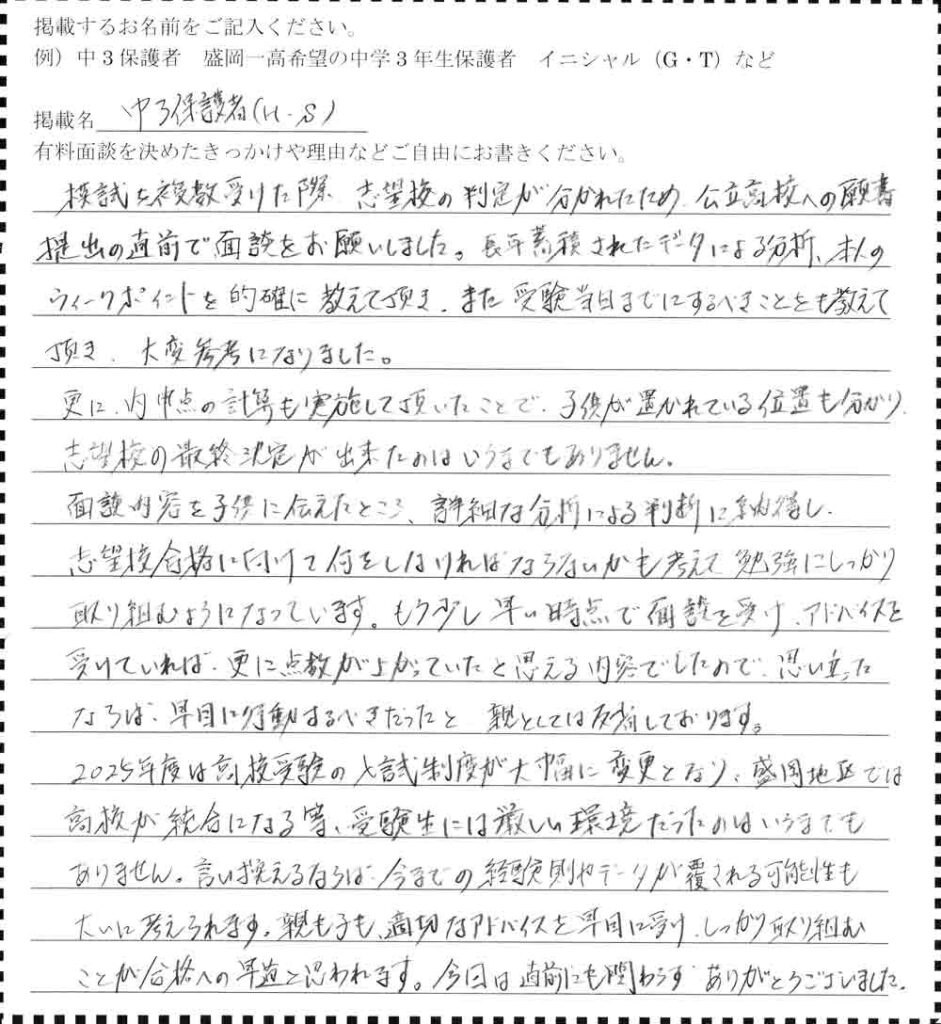 掲載するお名前をご記入ください。
例）中３保護者　盛岡一高希望の中学３年生保護者　イニシャル（G・T）など
掲載名 中3保護者(H.S)
有料面談を決めたきっかけや理由などご自由にお書きください。
模試を複数受けた際、志望校の判定が分かれたため、公立高校への願書
提出の直前で面談をお願いしました。長年蓄積されたデータによる分析、本人の
ウィークポイントを的確に教えて頂き、また受験当日までにするべきことも教えて
頂き、大変参考になりました。
更に、内申点の計算も実施して頂いたことで、子供が置かれている位置も分かり、
志望校の最終決定が出来たのはいうまでもありません。
面談内容を子供に伝えたところ、詳細な分析による判断に納得し、
志望校合格に付けて何をしなければならないかも考えて勉強にしっかり
取り組むようになっています。もう少し早い時点で面談を受け、アドバイスを
受けていれば、更に点数が上がっていたと思える内容でしたので、思い立った
ならば、早目に行動するべきだったと親としては反省しております。
2025年度は高校受験の入試制度が大幅に変更となり、盛岡地区では
高校が統合になる等、受験生には厳しい環境だったのはいうまでも
ありません。言い換えるならば、今までの経験則やデータが覆される可能性も
大いに考えられます。親も子も、適切なアドバイスを早目に受け、しっかり取り組む
ことが合格への早道と思われます。今回は直前にも関わらずありがとうございました。